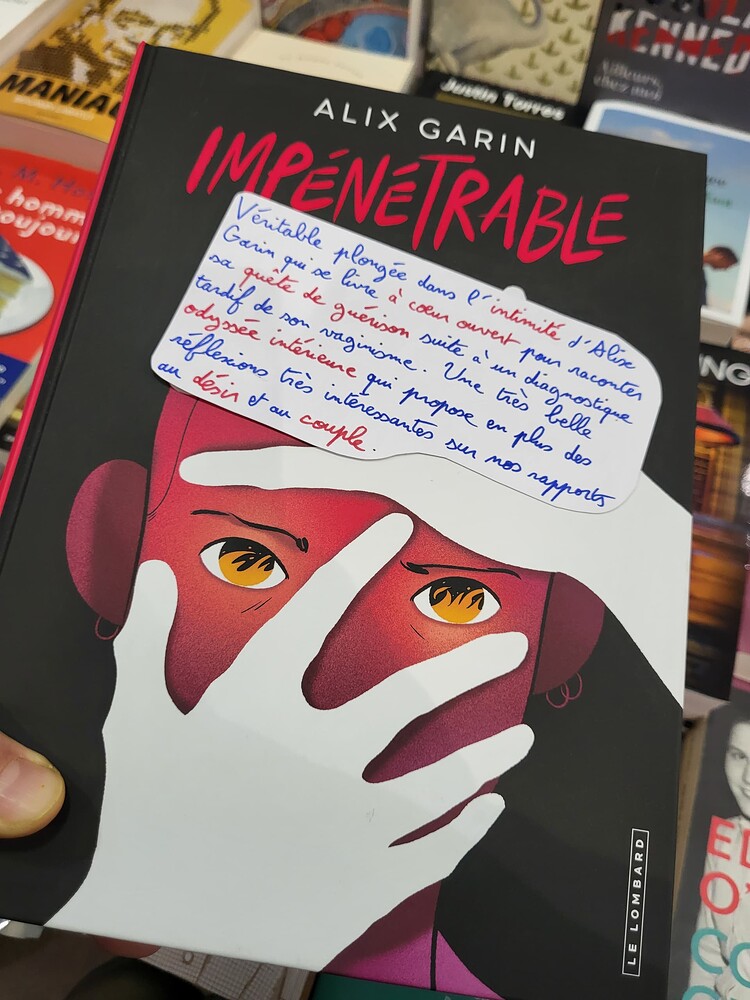 ALIX GARIN
IMPÉNÉTRABLE
Véritable plongée dans l'intimité d'Alix
Garin qui se livre à cœur ouvert pour raconter
sa quête de guérison suite à un diagnostique
tardif de son vaginisme. Une très belle
odyssée intérieure qui propose en plus des
réflexions très intéressantes sur nos rapports
au désir et au couple.
LE LOMBARD
MANIAC
Justin Torres
KENNED
Ailleurs,
chez moi
M.
homm
toujou